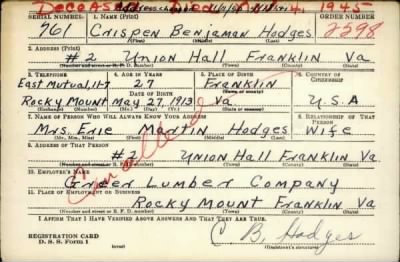 Deceased 4, 1945
SERIAL NUMBER 1. NAME (Print) ORDER NUMBER
761 Crispen Benjaman Hodges 2598
(First) (Middle) (Last)
2. ADDRESS (Print)
#2 Union Hall Franklin Va
(Number and street or R. F. D. number) (Town) (County) (State)
3. TELEPHONE 4. AGE IN YEARS 5. PLACE OF BIRTH 6. COUNTRY OF CITIZENSHIP
East Mutual, 11-7 27 Franklin
DATE OF BIRTH
Rocky Mount May 27, 1913 Va U.S.A
(Exchange) (Number) (Mo.) (Day) (Yr.) (State or country)
7. NAME OF PERSON WHO WILL ALWAYS KNOW YOUR ADDRESS 8. RELATIONSHIP OF THAT PERSON
Mrs. Erie Martin Hodges Wife
(Mr., Mrs., Miss) (First) (Middle) (Last)
9. ADDRESS OF THAT PERSON
#2 Union Hall Franklin Va
(Number and street or R. F. D. number) (Town) (County) (State)
10. EMPLOYER'S NAME
Greer Lumber Company
11. PLACE OF EMPLOYMENT OR BUSINESS
Rocky Mount Franklin Va
(Number and street or R. F. D. number) (Town) (County) (State)
I AFFIRM THAT I HAVE VERIFIED ABOVE ANSWERS AND THAT THEY ARE TRUE.
REGISTRATION CARD
D. S. S. Form 1
C B, Hodges
(Registrant's signature)